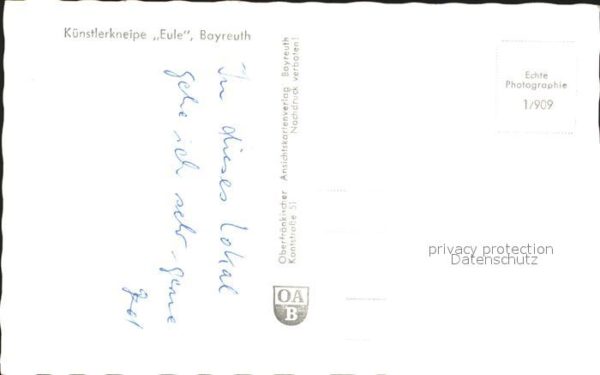 Künstlerkneipe „Eule", Bayreuth
In dieses Lokal
gehe ich sehr gerne
Oberfränkischer Ansichtskartenverlag Bayreuth
Kantstraße 51 Nachdruck verboten!
OA
B
Echte
Photographie
1/909
privacy protection
Datenschutz